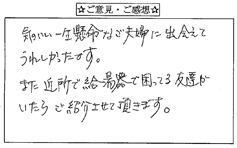 ☆ご意見・ご感想☆
気のいい一生懸命なご夫婦に出会えて
うれしかったです。
また近所で給湯器で困ってる友達が
いたらご紹介させて頂きます。